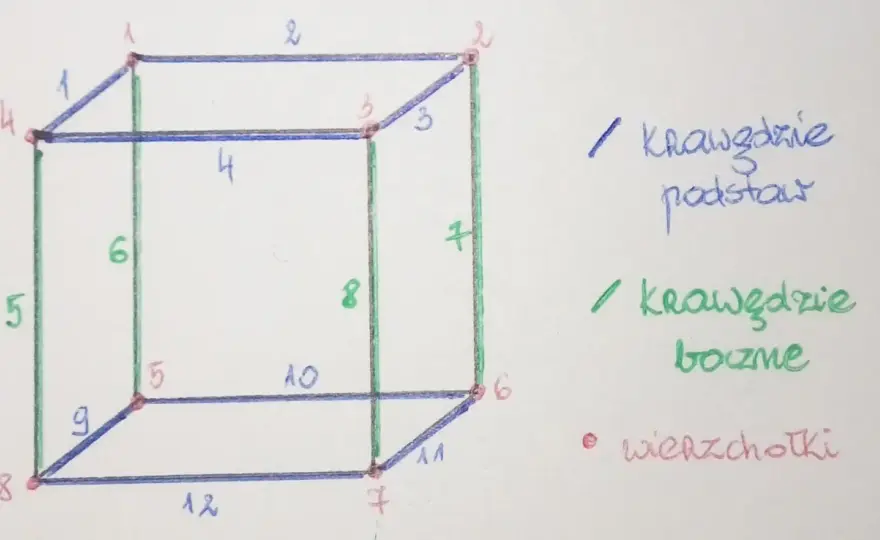 1 2 2
1
4 3 3
4
krawędzie
podstaw
6 7
5 8
krawędzie
boczne
5 10 6
9 11
wierzchołki
8 12 7